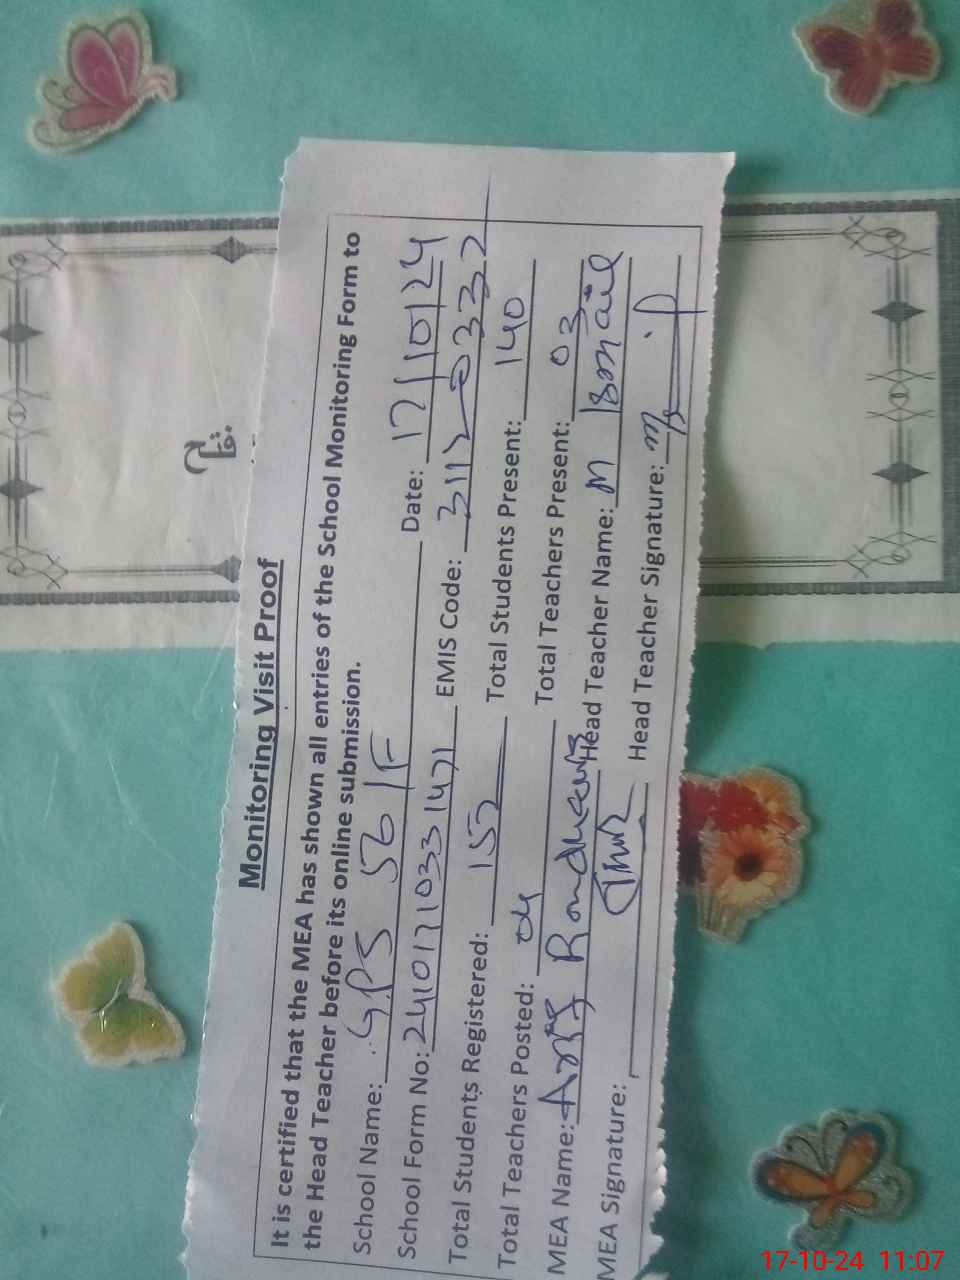 Monitoring Visit Proof
It is certified that the MEA has shown all entries of the School Monitoring Form to
the Head Teacher before its online submission.
School Name: GPS 56/F Date: 17/10/24
School Form No: 24101710331471 EMIS Code: 31120332
Total Students Registered: 152 Total Students Present: 140
Total Teachers Posted: 04 Total Teachers Present: 03
MEA Name: Randhawa Head Teacher Name: M Ismail
MEA Signature: Head Teacher Signature:
17-10-24 11:07